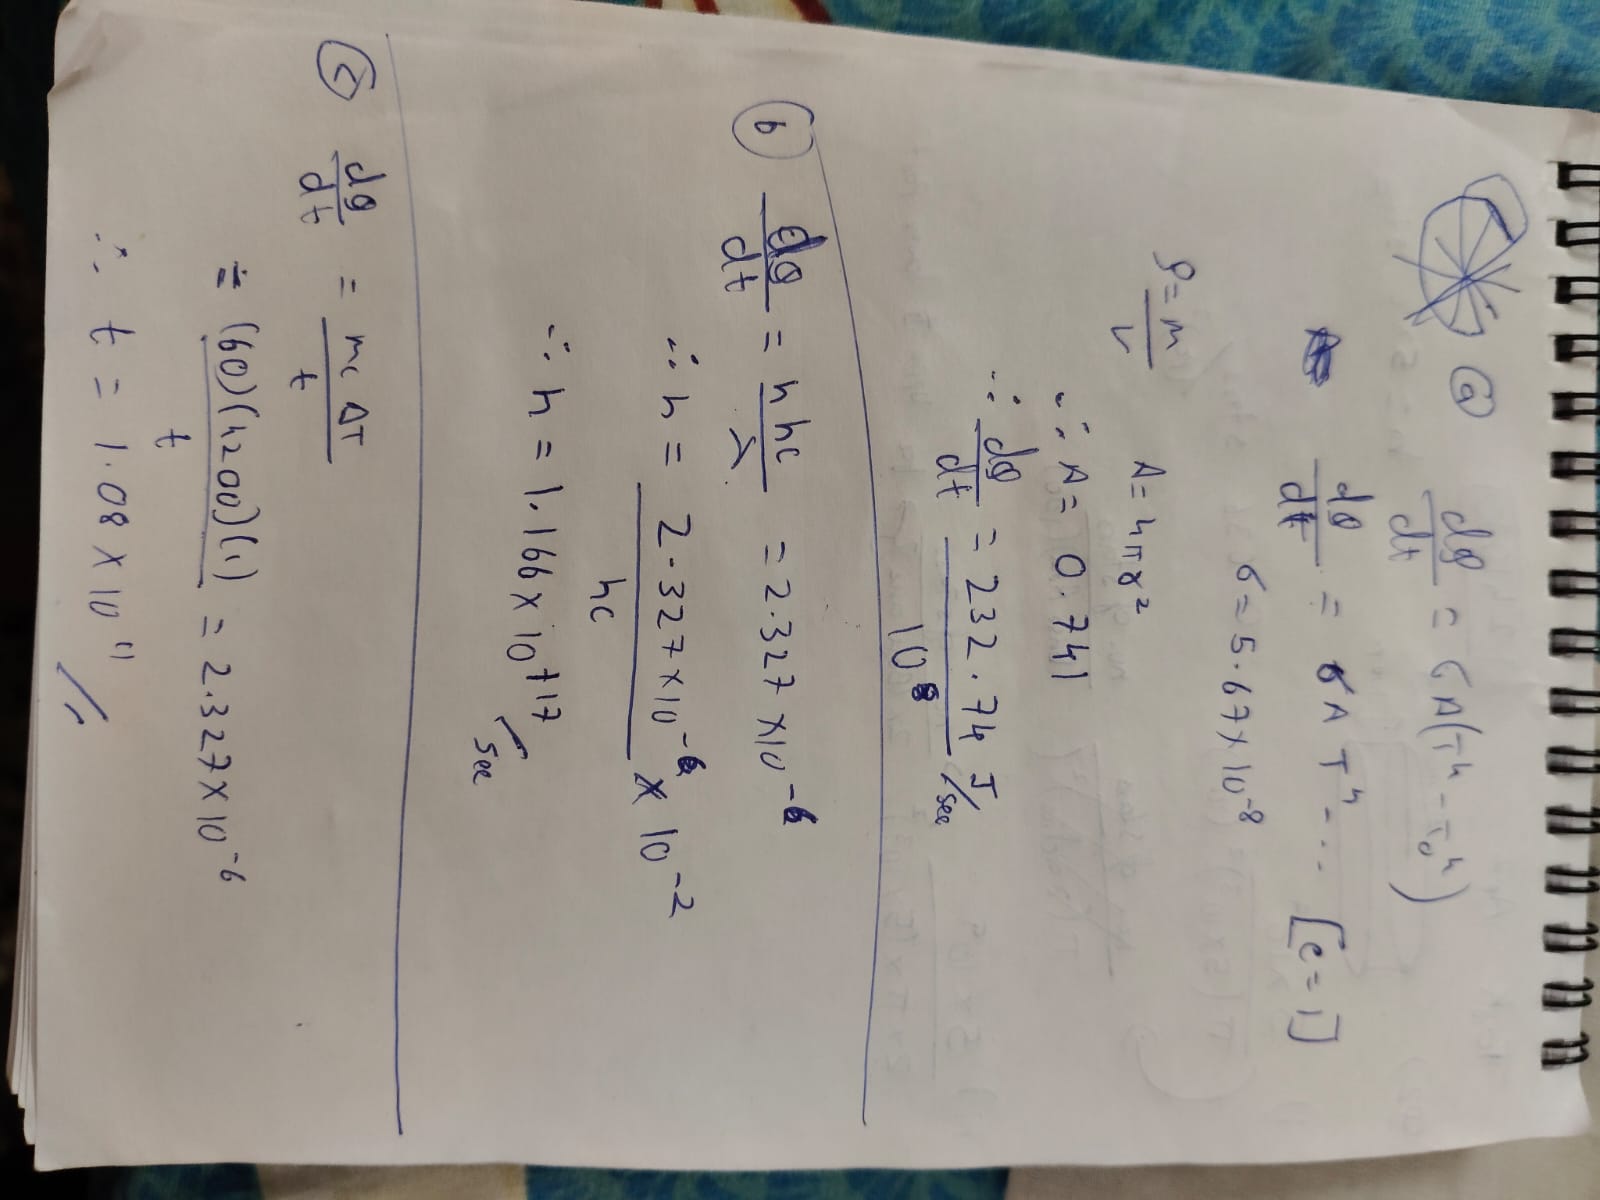 ⓐ dQ/dt = σA(T⁴ - T₀⁴)
dQ/dt = σ A T⁴ - ... [e = 1]
σ = 5.67 × 10⁻⁸
ρ = m/V A = 4πr²
∴ A = 0.741
∴ dQ/dt = 232.74/10⁸ J/sec
ⓑ dQ/dt = n hc/λ = 2.327 × 10⁻⁶
∴ n = 2.327 × 10⁻⁶/hc × 10⁻²
∴ n = 1.166 × 10⁺¹⁷/sec
ⓒ dQ/dt = mc ΔT/t
= (60)(4200)(1)/t = 2.327 × 10⁻⁶
∴ t = 1.08 × 10¹¹